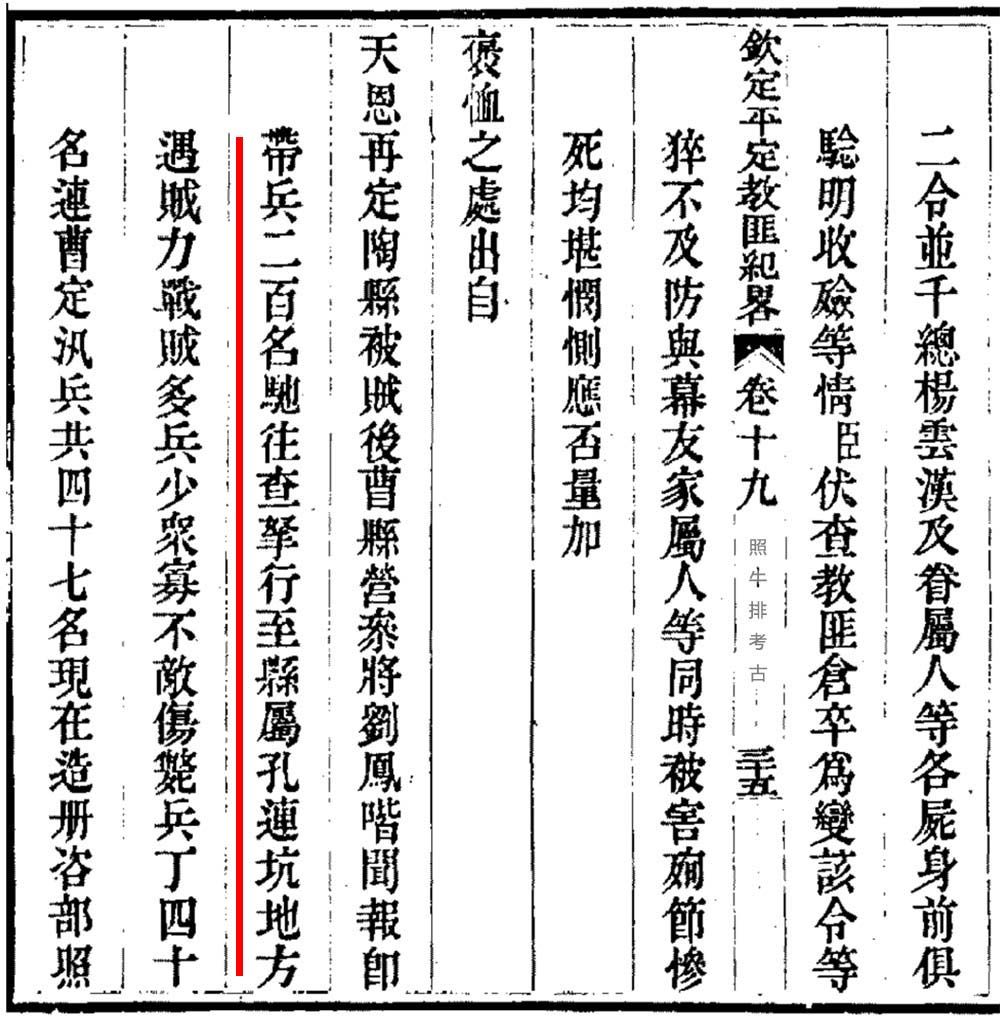 二令並千總楊雲漢及眷屬人等各屍身前俱
騐明收殮等情臣伏查教匪倉卒為變該令等
欽定平定教匪紀畧 卷十九 三十五
照牛排考古
猝不及防與幕友家屬人等同時被害殉節慘
死均堪憫惻應否量加
褒恤之處出自
天恩再定陶縣被賊後曹縣營叅將劉鳳階聞報卽
帶兵二百名馳往查拏行至縣屬孔連坑地方
遇賊力戰賊多兵少衆寡不敵傷斃兵丁四十
名連曹定汛兵共四十七名現在造册咨部照